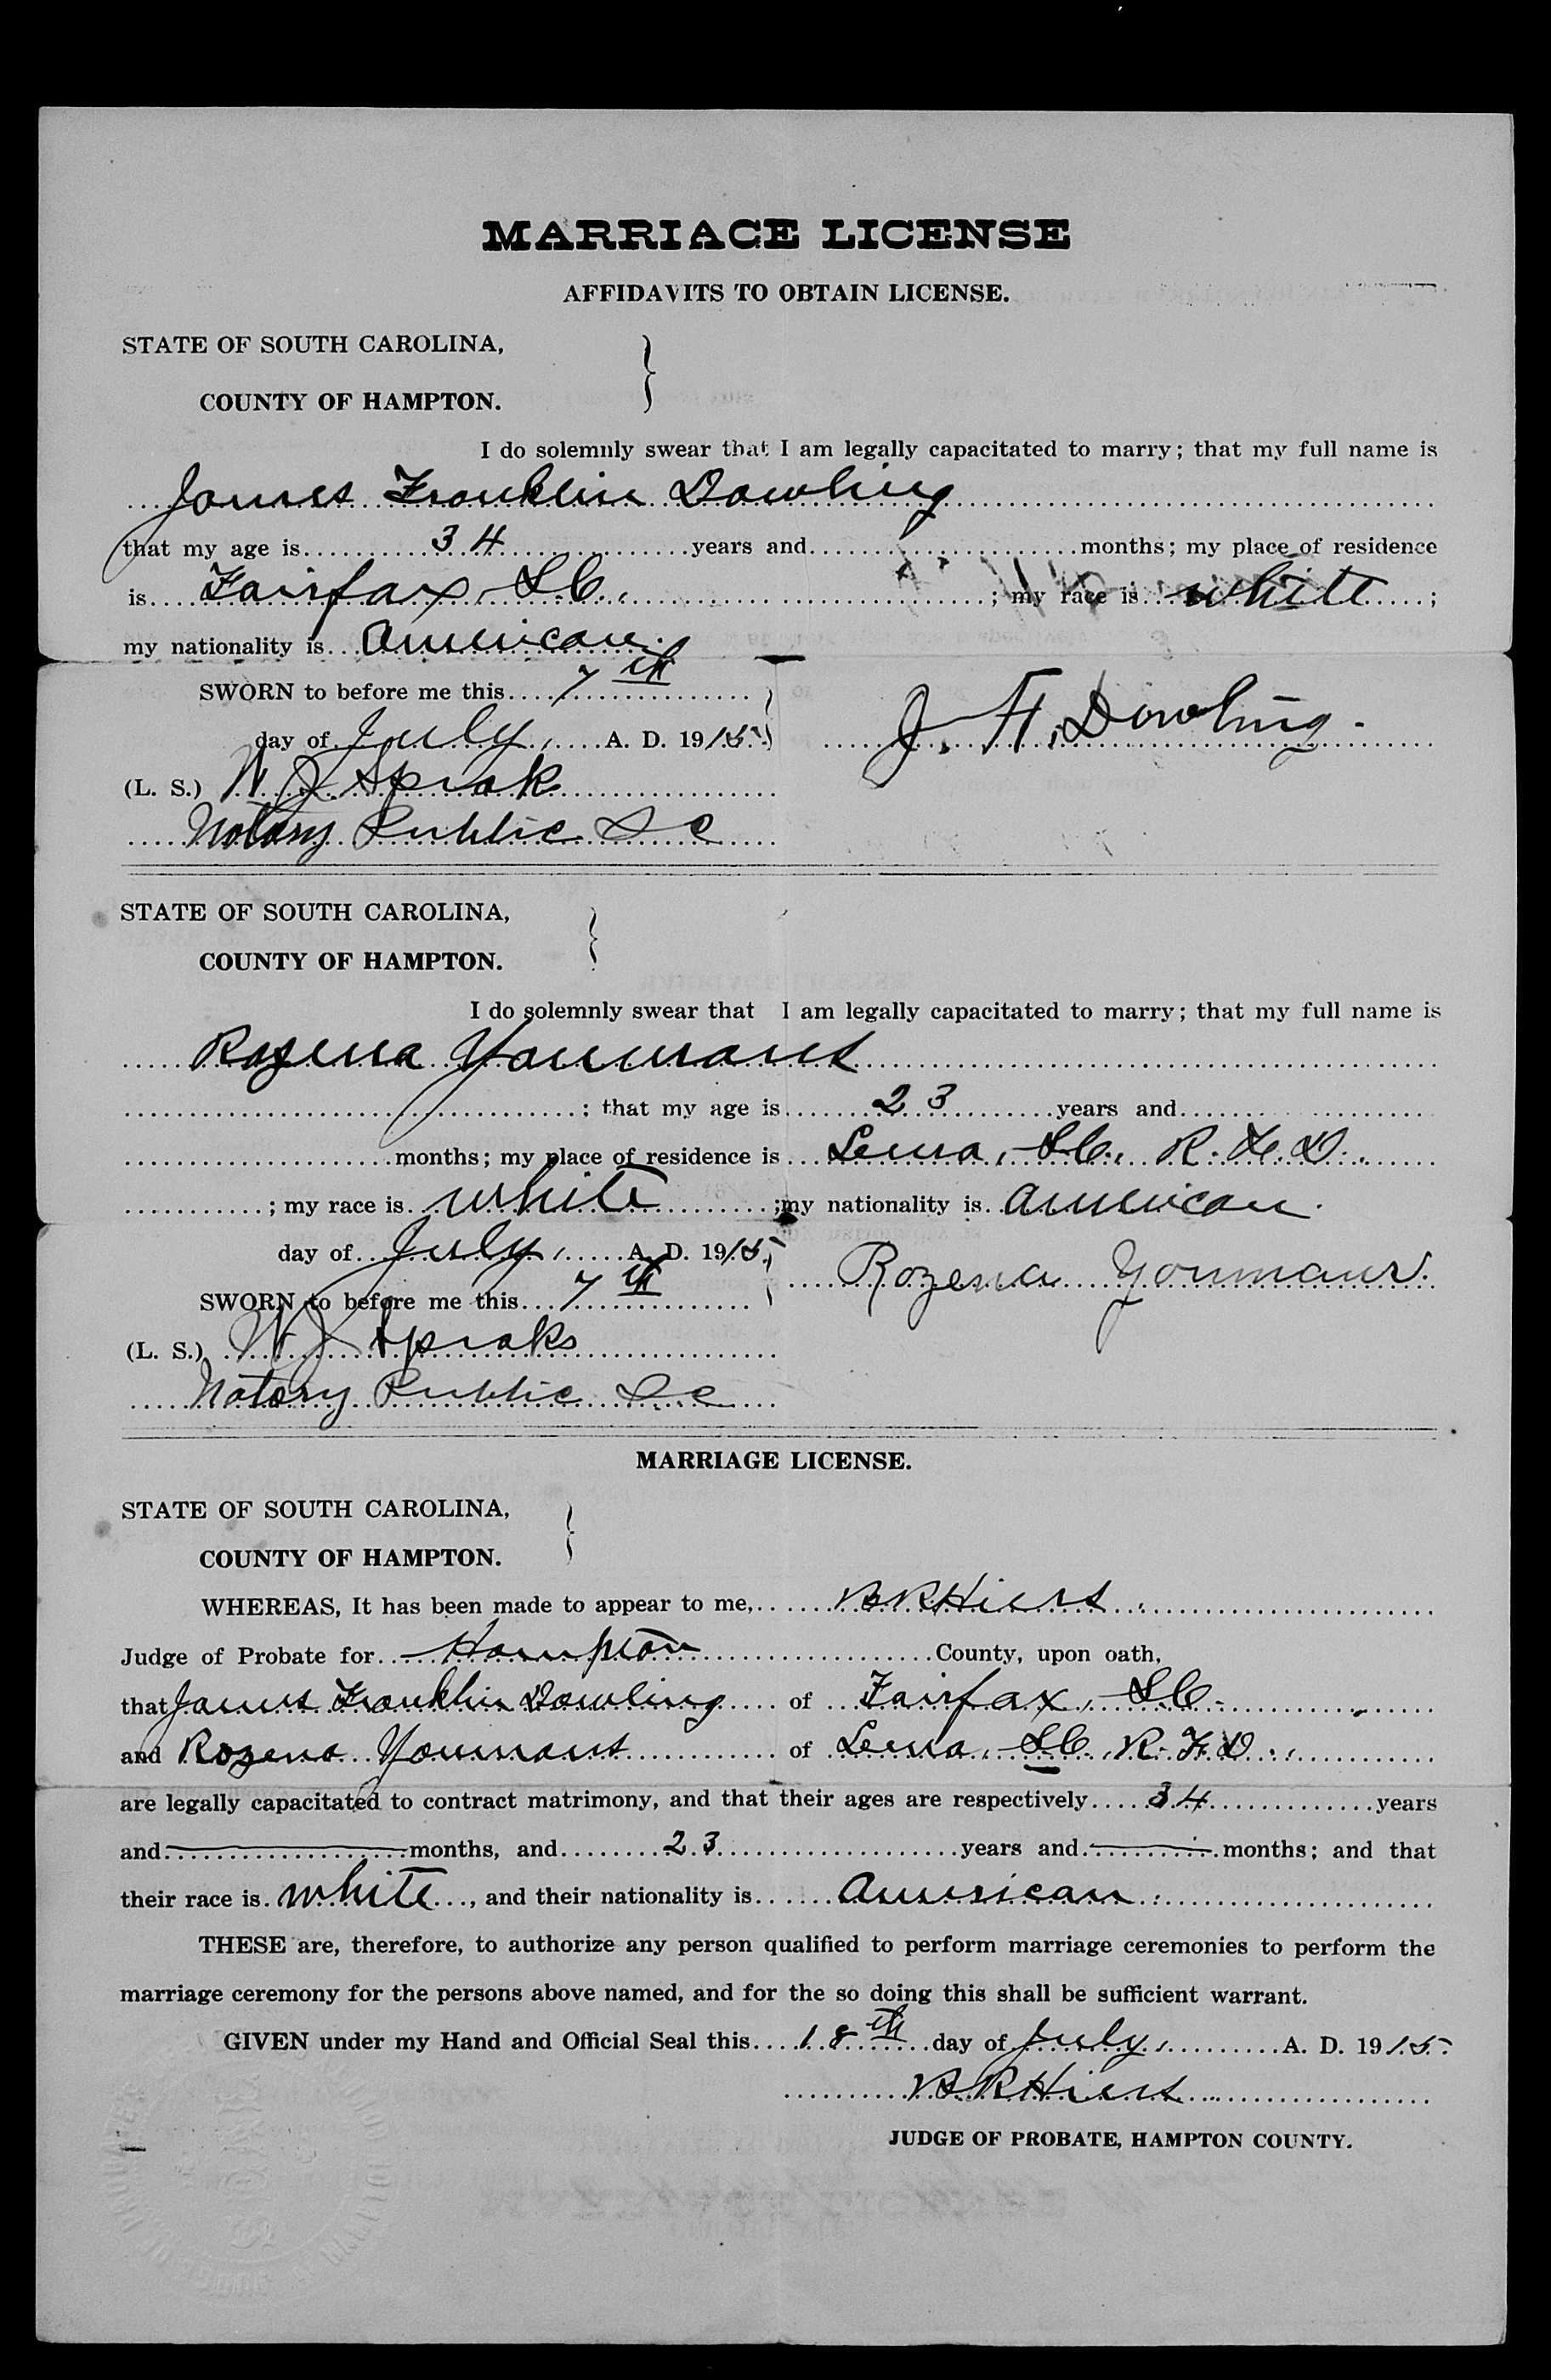 MARRIAGE LICENSE
AFFIDAVITS TO OBTAIN LICENSE.
STATE OF SOUTH CAROLINA,
COUNTY OF HAMPTON.
I do solemnly swear that I am legally capacitated to marry; that my full name is
James Franklin Dowling
that my age is 34 years and months; my place of residence
is Fairfax, S.C., ; my race is white ;
my nationality is American.
SWORN to before me this 7th
day of July, A. D. 1915.
J. F. Dowling.
(L. S.) W J Sprak
Notary Public S C
STATE OF SOUTH CAROLINA,
COUNTY OF HAMPTON.
I do solemnly swear that I am legally capacitated to marry; that my full name is
Rozena Youmans
; that my age is 23 years and
months; my place of residence is Lena, S.C., R.F.D.
; my race is white ; my nationality is American.
day of July, A. D. 1915.
Rozena Youmans.
SWORN to before me this 7th
(L. S.) W J Spraks
Notary Public S C
MARRIAGE LICENSE.
STATE OF SOUTH CAROLINA,
COUNTY OF HAMPTON.
WHEREAS, It has been made to appear to me, B R Hiers,
Judge of Probate for Hampton County, upon oath,
that James Franklin Dowling of Fairfax, S.C.
and Rozena Youmans of Lena, S.C., R.F.D.,
are legally capacitated to contract matrimony, and that their ages are respectively 34 years
and months, and 23 years and months; and that
their race is white, and their nationality is American.
THESE are, therefore, to authorize any person qualified to perform marriage ceremonies to perform the
marriage ceremony for the persons above named, and for the so doing this shall be sufficient warrant.
GIVEN under my Hand and Official Seal this 18th day of July, A. D. 1915.
B R Hiers
JUDGE OF PROBATE, HAMPTON COUNTY.